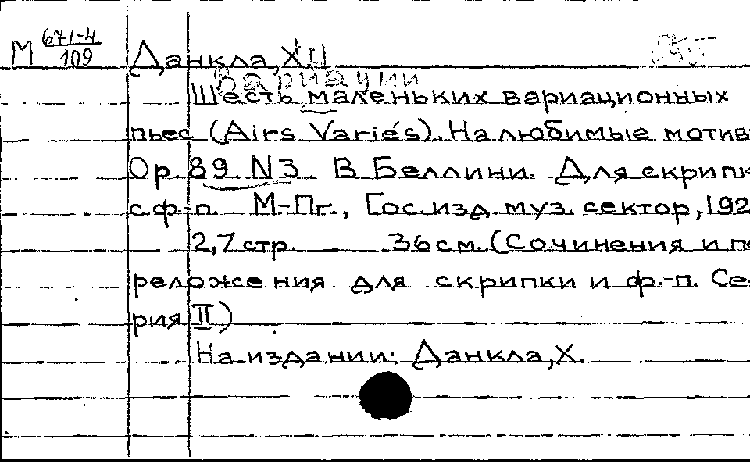 М 671-4/109
Данкла, Х
Вариации
Шесть маленьких вариационных
пьес (Airs Variés). На любимые мотив
Ор. 89 N3. В. Беллини. Для скрипк
с ф.-п. М-Пг., Гос. изд. муз. сектор, 192
2,7 стр. 36 см. (Сочинения и пе
реложения для скрипки и ф.-п. Се
рия II)
На издании: Данкла, Х.